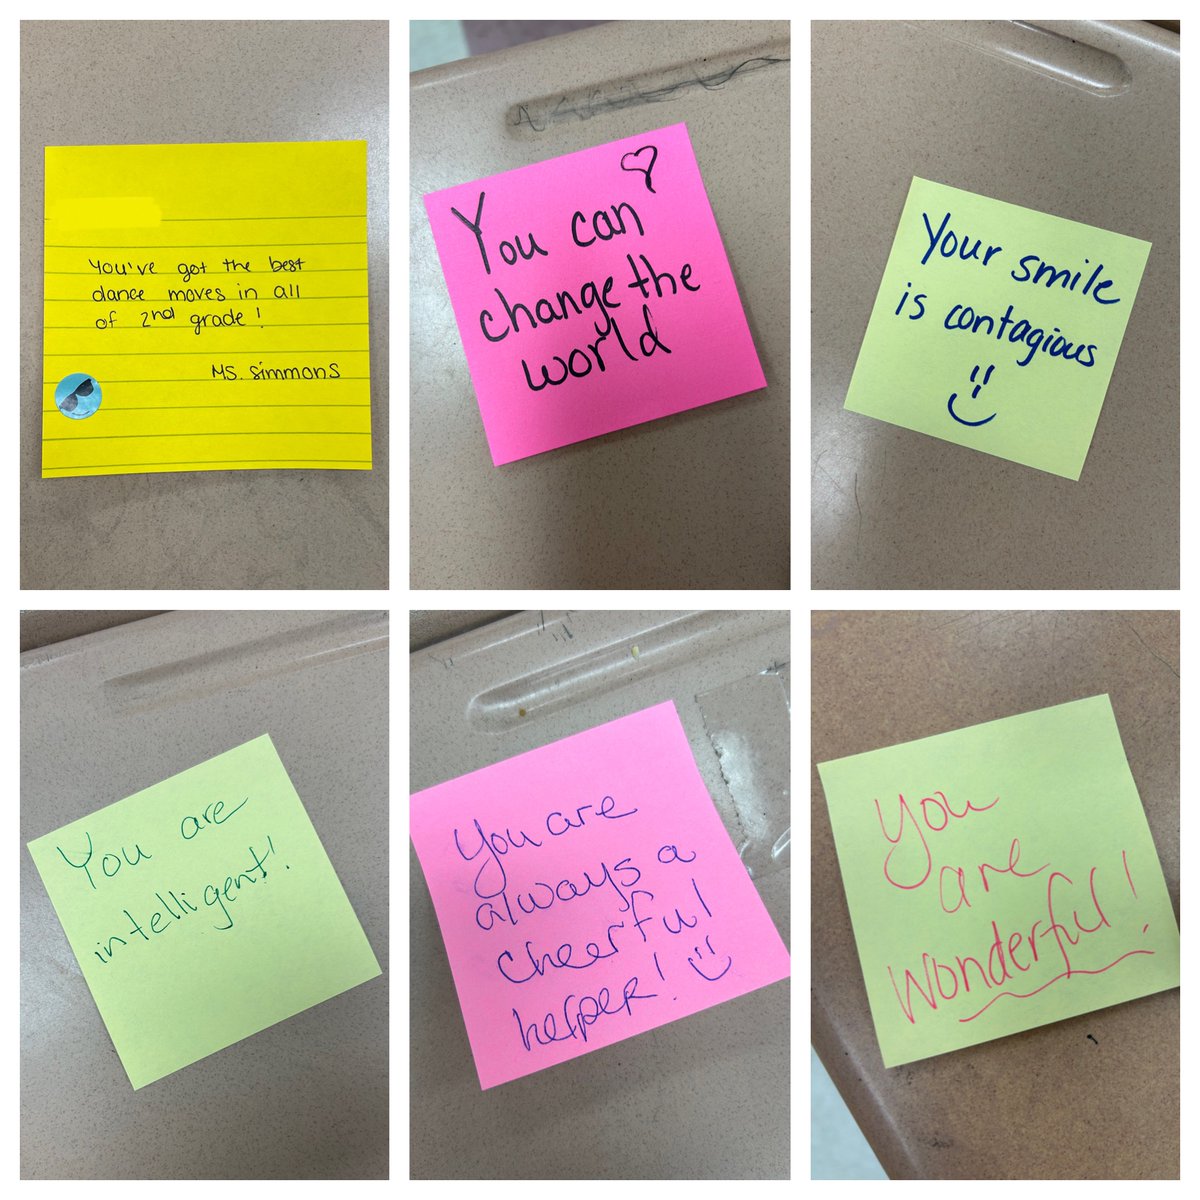 You've got the best
dance moves in all
of 2nd grade!
Ms. Simmons
You can
change the
world
Your smile
is contagious
You are
intelligent!
You are
always a
cheerful
helper!
You
are
wonderful!